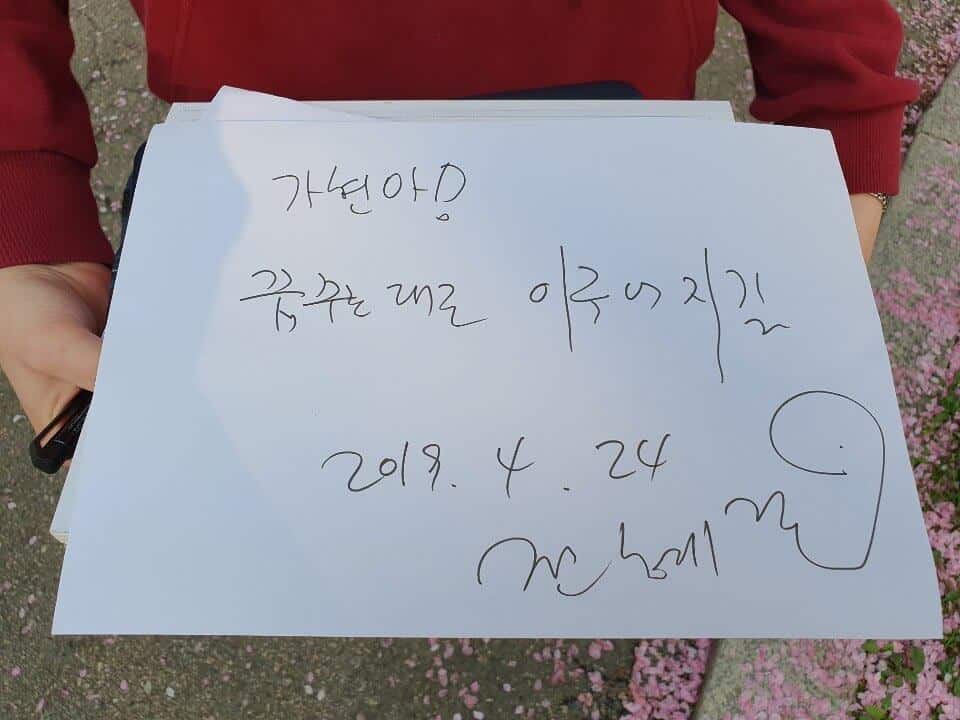 가연아!
꿈꾸는 대로 이루어지길
2019. 4. 24